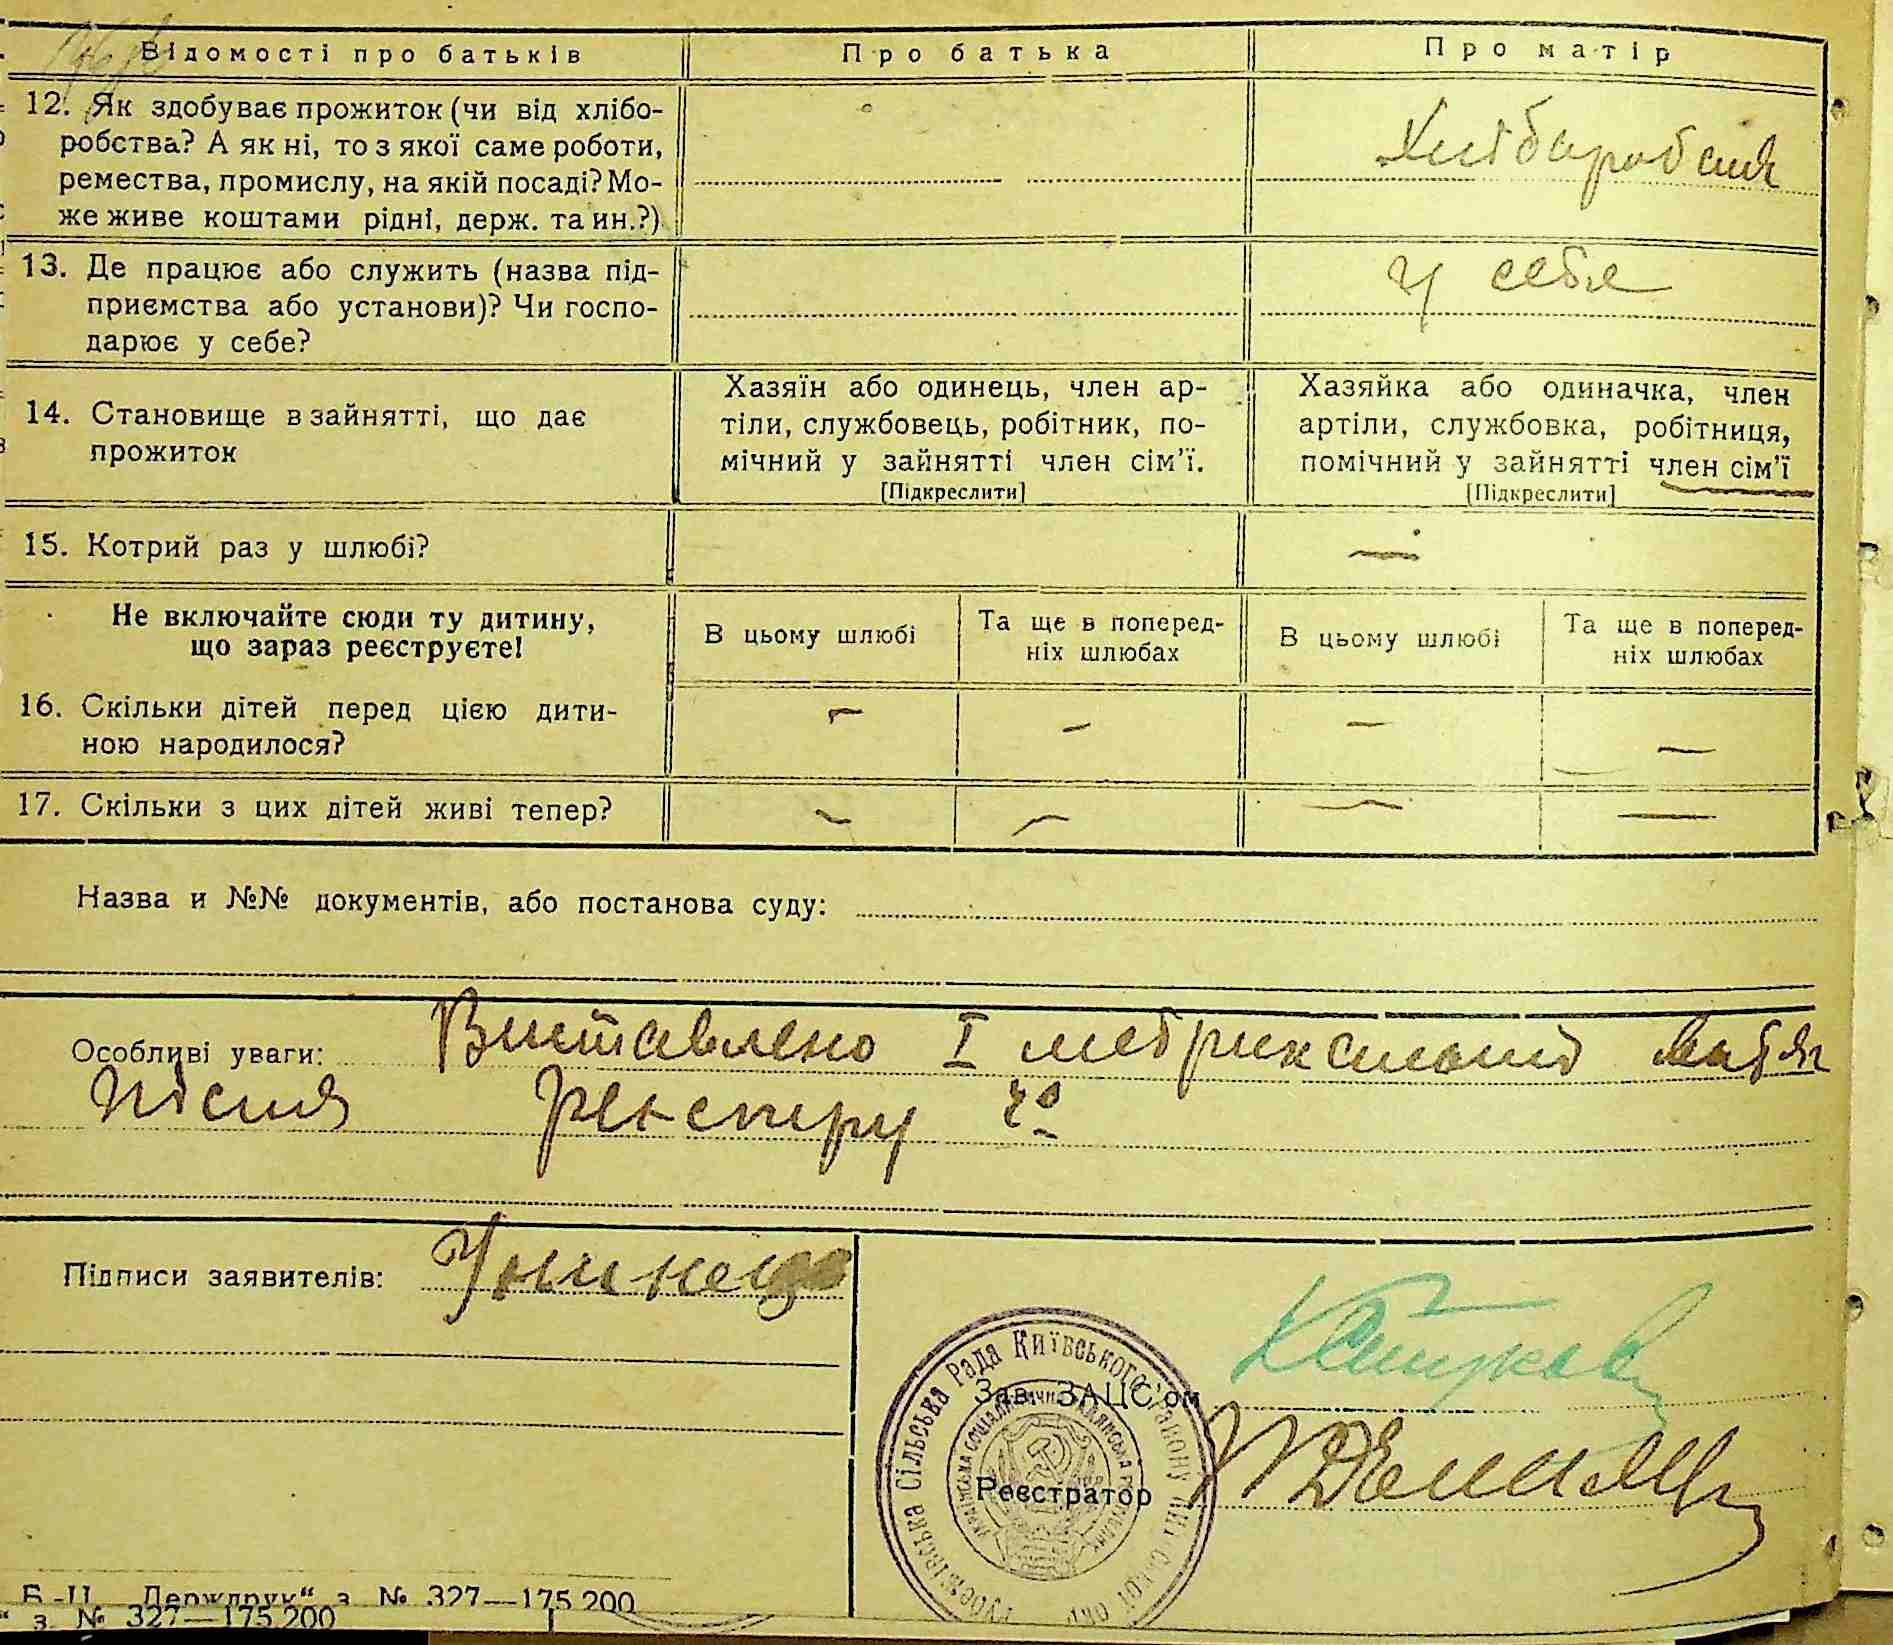 Відомості про батьків
Про батька
Про матір
12. Як здобуває прожиток (чи від хлібо-
робства? А як ні, то з якої саме роботи,
ремества, промислу, на якій посаді? Мо-
же живе коштами рідні, держ. та ин.?)
13. Де працює або служить (назва під-
приємства або установи)? Чи госпо-
дарює у себе?
у себе
14. Становище в зайнятті, що дає
прожиток
Хазяїн або одинець, член ар-
тіли, службовець, робітник, по-
мічний у зайнятті член сім'ї.
[Підкреслити]
Хазяйка або одиначка, член
артіли, службовка, робітниця,
помічний у зайнятті член сім'ї
[Підкреслити]
15. Котрий раз у шлюбі?
—
Не включайте сюди ту дитину,
що зараз реєструєте!
В цьому шлюбі
Та ще в поперед-
ніх шлюбах
В цьому шлюбі
Та ще в поперед-
ніх шлюбах
16. Скільки дітей перед цією дити-
ною народилося?
— — — —
17. Скільки з цих дітей живі тепер?
— — — —
Назва и №№ документів, або постанова суду:
Особливі уваги: Виставлено I
Підписи заявителів:
Зав. ЗАЦС'ом
Реєстратор
Сільська Рада Київського Району
Б.-Ц. „Держдрук“ з. № 327—175.200
“ з. № 327—175.200